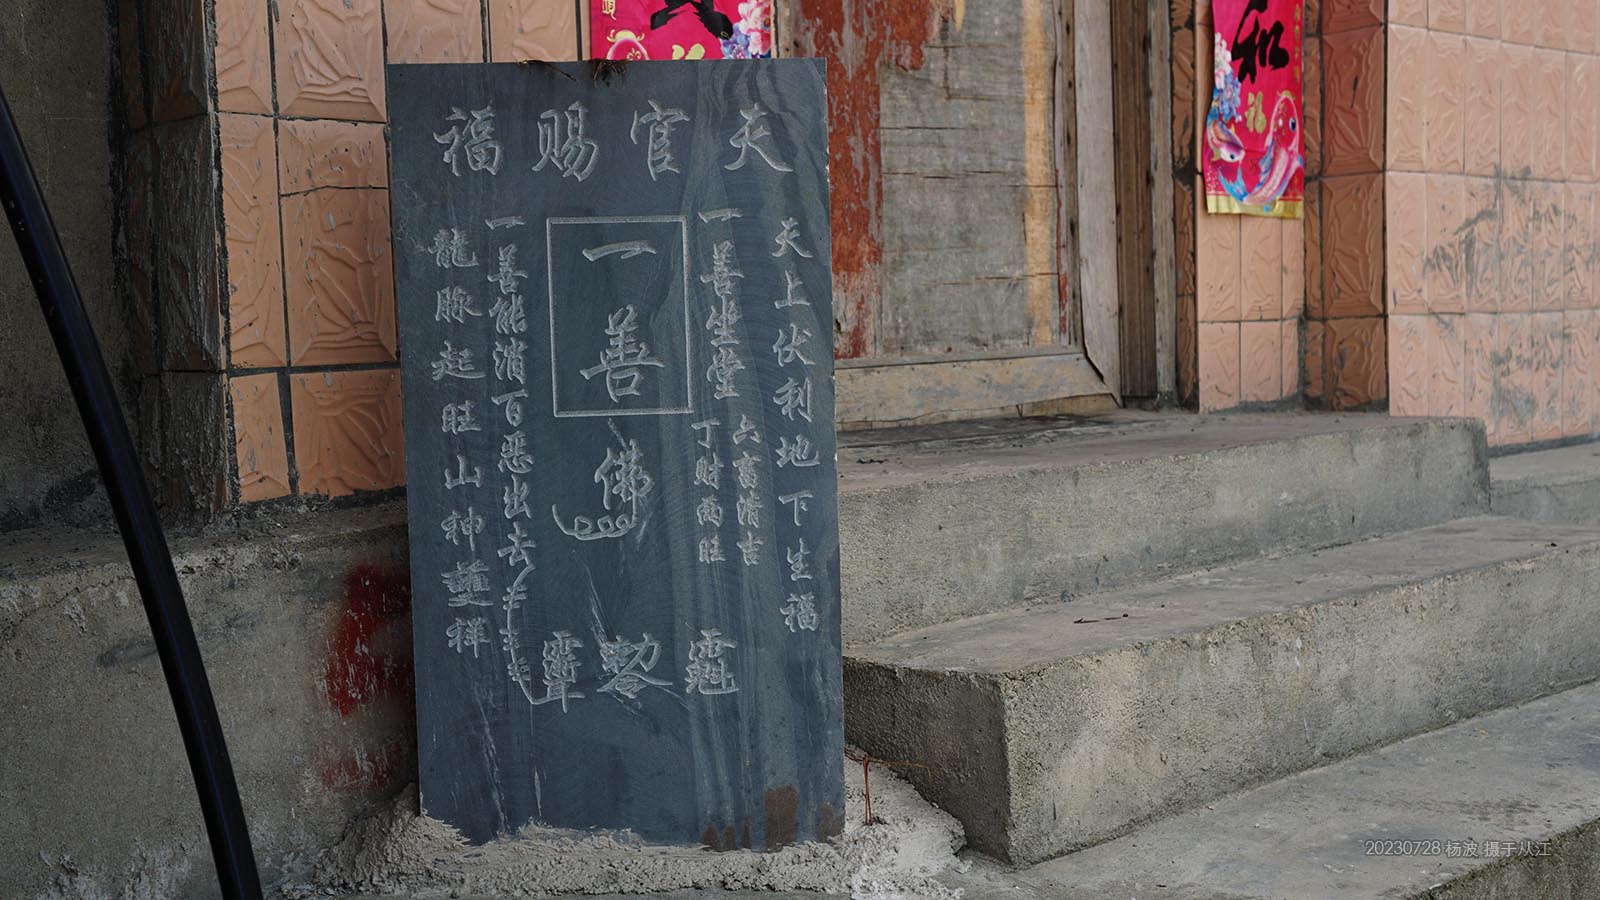 天官賜福
天上伏利地下生福
一善坐堂
六畜清吉
丁财両旺
一善
佛
一善能消百惡出去
龍脉起旺山神
祥
和
福
20230728 杨波 摄于从江